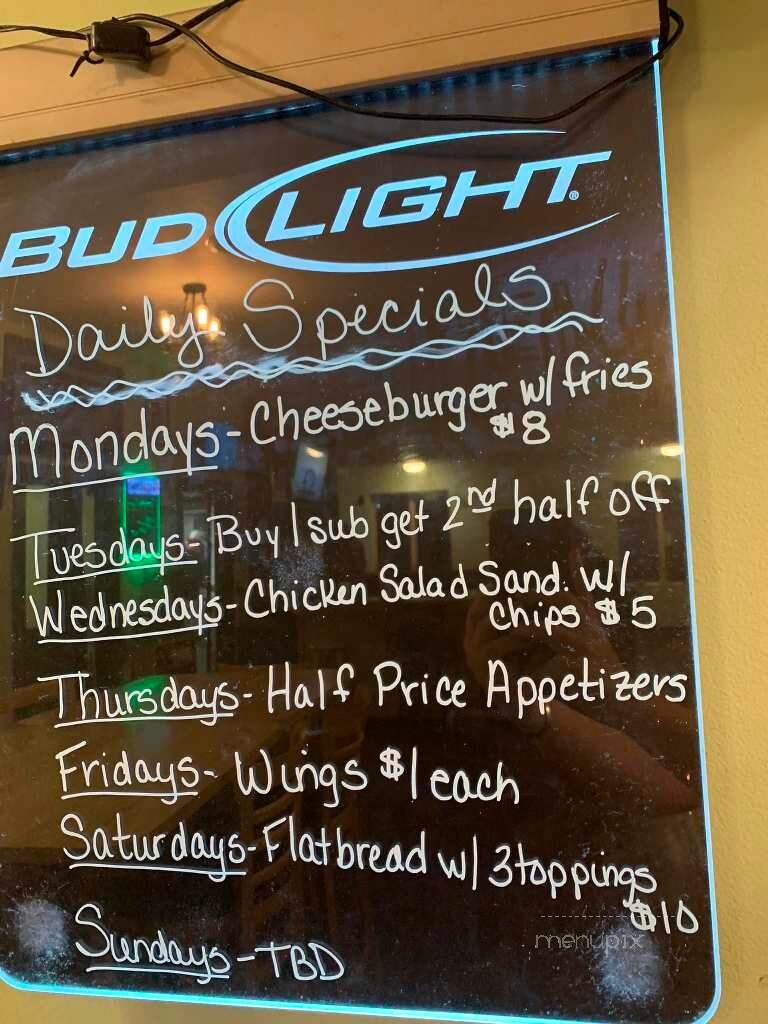 BUD LIGHT®
Daily Specials
Mondays-Cheeseburger w/ fries
$8
Tuesdays- Buy 1 sub get 2nd half off
Wednesdays-Chicken Salad Sand. w/
Chips $5
Thursdays- Half Price Appetizers
Fridays- Wings $1 each
Saturdays-Flatbread w/ 3 toppings
$10
menupix
Sundays-TBD